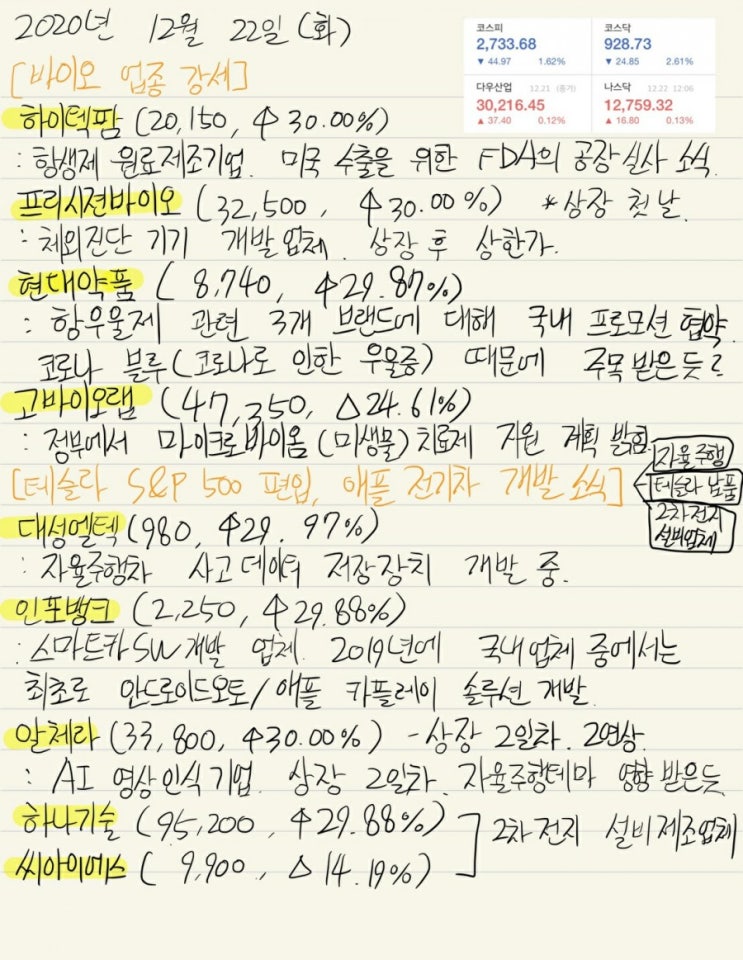 2020년 12월 22일 (화)
코스피
2,733.68
▼ 44.97 1.62%
코스닥
928.73
▼ 24.85 2.61%
다우산업 12.21 (종가)
30,216.45
▲ 37.40 0.12%
나스닥 12.22 12:06
12,759.32
▲ 16.80 0.13%
[바이오 업종 강세]
하이텍팜 (20,150, ↑30.00%)
: 항생제 원료제조기업. 미국 수출을 위한 FDA의 공장실사 소식.
프리시젼바이오 (32,500, ↑30.00%) *상장 첫날.
: 체외진단 기기 개발업체. 상장 후 상한가.
현대약품 (8,740, ↑29.87%)
: 항우울제 관련 3개 브랜드에 대해 국내 프로모션 협약.
코로나 블루(코로나로 인한 우울증) 때문에 주목 받은듯?
고바이오랩 (47,350, △24.61%)
: 정부에서 마이크로바이옴(미생물)치료제 지원 계획 밝힘.
[테슬라 S&P 500 편입, 애플 전기차 개발 소식]
자율주행
테슬라 납품
2차전지
설비업체
대성엘텍 (980, ↑29.97%)
: 자율주행차 사고데이터 저장장치 개발 중.
인포뱅크 (2,250, ↑29.88%)
: 스마트카SW개발 업체. 2019년에 국내업체 중에서는
최초로 안드로이드오토/애플 카플레이 솔루션 개발.
알체라 (33,800, ↑30.00%) - 상장 2일차. 2연상.
: AI 영상인식기업. 상장 2일차. 자율주행테마 영향 받은듯
하나기술 (95,200, ↑29.88%)
씨아이에스 (9,900, △14.19%)
] 2차전지 설비제조업체